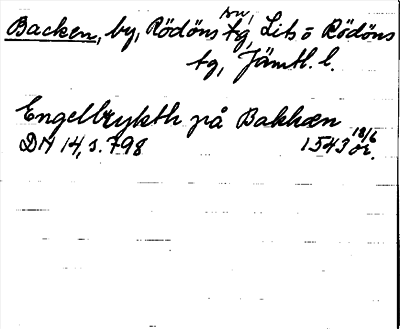 Backen, by, Rödöns sn, tg, Lits o Rödöns
tg, Jämtl. l.
Engelbrykth på Bakken
DN 14, s. 798 1543 18/6 or.